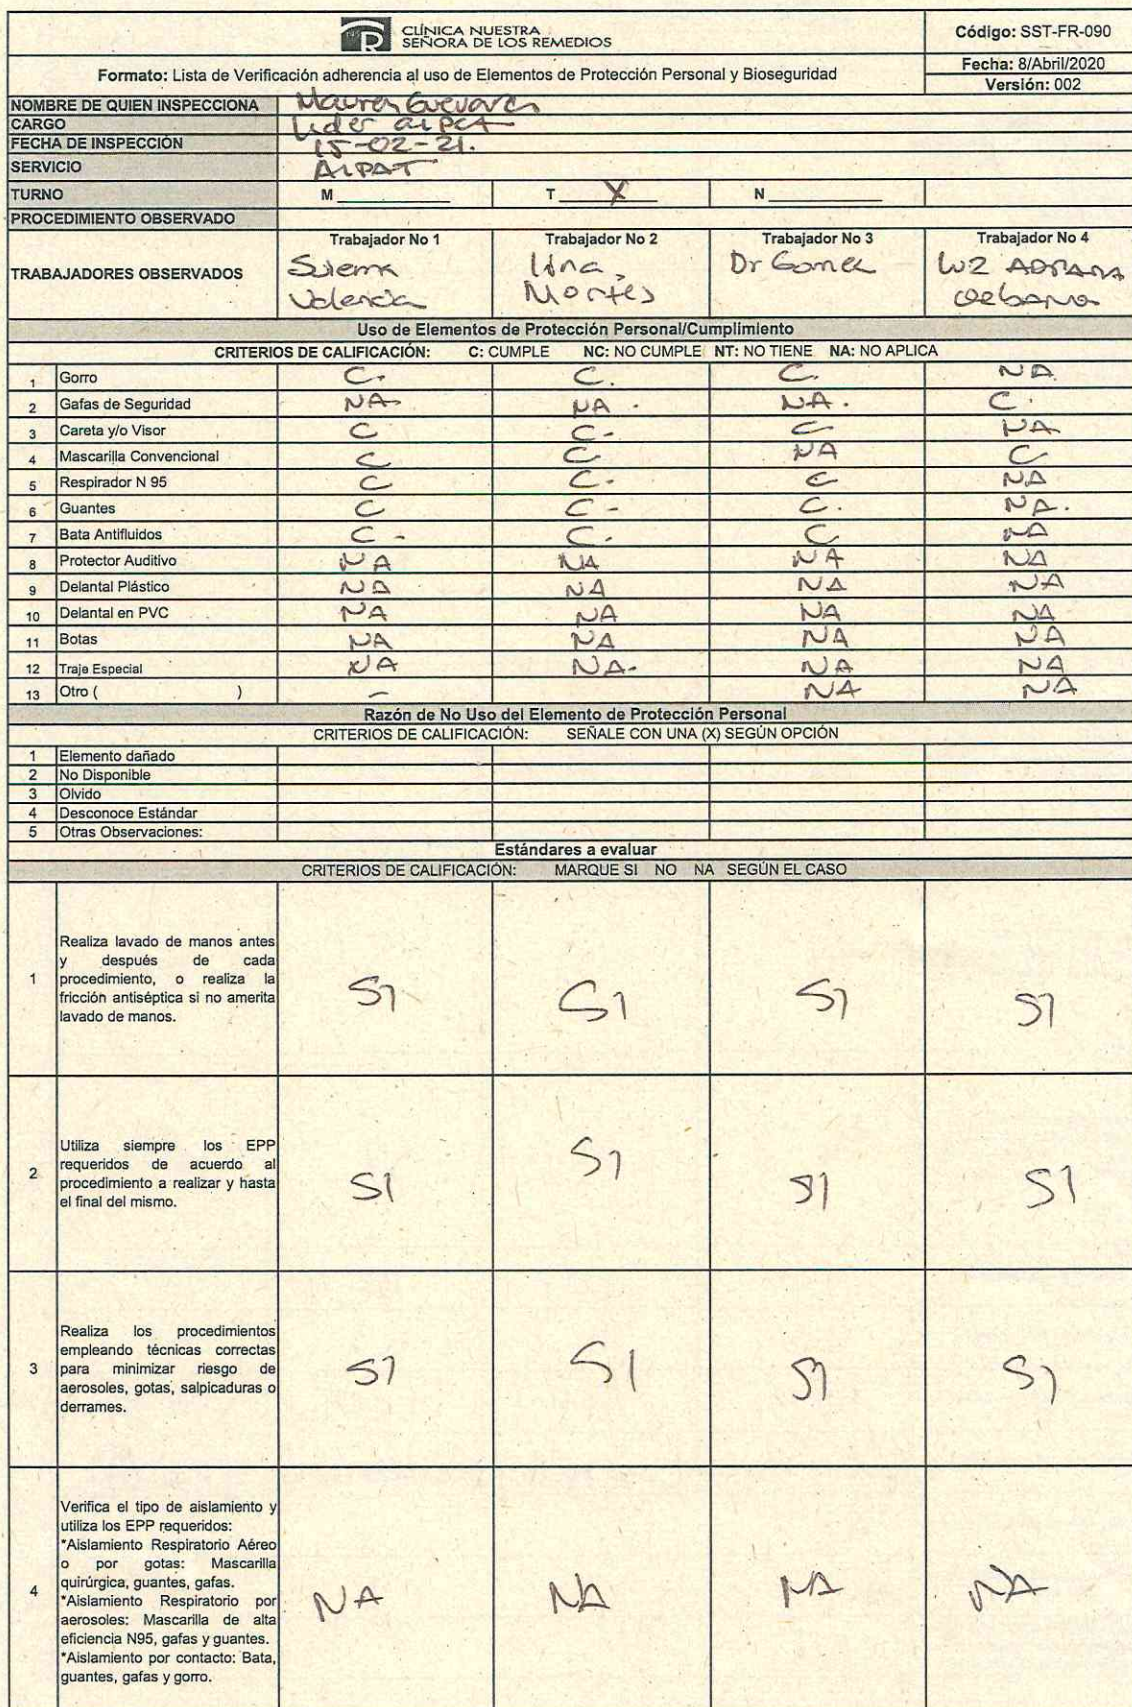 CLÍNICA NUESTRA
SEÑORA DE LOS REMEDIOS
Código: SST-FR-090
Formato: Lista de Verificación adherencia al uso de Elementos de Protección Personal y Bioseguridad
Fecha: 8/Abril/2020
Versión: 002
NOMBRE DE QUIEN INSPECCIONA Guevara
CARGO Lider
FECHA DE INSPECCIÓN 15-02-21.
SERVICIO AIPAT
TURNO M T X N
PROCEDIMIENTO OBSERVADO
TRABAJADORES OBSERVADOS
Trabajador No 1 Trabajador No 2 Trabajador No 3 Trabajador No 4
Valencia
Montes
Dr Gomez
Luz
Uso de Elementos de Protección Personal/Cumplimiento
CRITERIOS DE CALIFICACIÓN: C: CUMPLE NC: NO CUMPLE NT: NO TIENE NA: NO APLICA
1 Gorro C. C. C. NA
2 Gafas de Seguridad NA NA. NA. C.
3 Careta y/o Visor C C- C NA
4 Mascarilla Convencional C C NA C
5 Respirador N 95 C C. C NA
6 Guantes C C- C. NA.
7 Bata Antifluidos C- C. C NA
8 Protector Auditivo NA NA NA NA
9 Delantal Plástico NA NA NA NA
10 Delantal en PVC NA NA NA NA
11 Botas NA NA NA NA
12 Traje Especial NA NA- NA NA
13 Otro ( ) - NA NA
Razón de No Uso del Elemento de Protección Personal
CRITERIOS DE CALIFICACIÓN: SEÑALE CON UNA (X) SEGÚN OPCIÓN
1 Elemento dañado
2 No Disponible
3 Olvido
4 Desconoce Estándar
5 Otras Observaciones:
Estándares a evaluar
CRITERIOS DE CALIFICACIÓN: MARQUE SI NO NA SEGÚN EL CASO
1
Realiza lavado de manos antes
y después de cada
procedimiento, o realiza la
fricción antiséptica si no amerita
lavado de manos.
SI SI SI SI
2
Utiliza siempre los EPP
requeridos de acuerdo al
procedimiento a realizar y hasta
el final del mismo.
SI SI SI SI
3
Realiza los procedimientos
empleando técnicas correctas
para minimizar riesgo de
aerosoles, gotas, salpicaduras o
derrames.
SI SI SI SI
4
Verifica el tipo de aislamiento y
utiliza los EPP requeridos:
*Aislamiento Respiratorio Aéreo
o por gotas: Mascarilla
quirúrgica, guantes, gafas.
*Aislamiento Respiratorio por
aerosoles: Mascarilla de alta
eficiencia N95, gafas y guantes.
*Aislamiento por contacto: Bata,
guantes, gafas y gorro.
NA NA NA NA